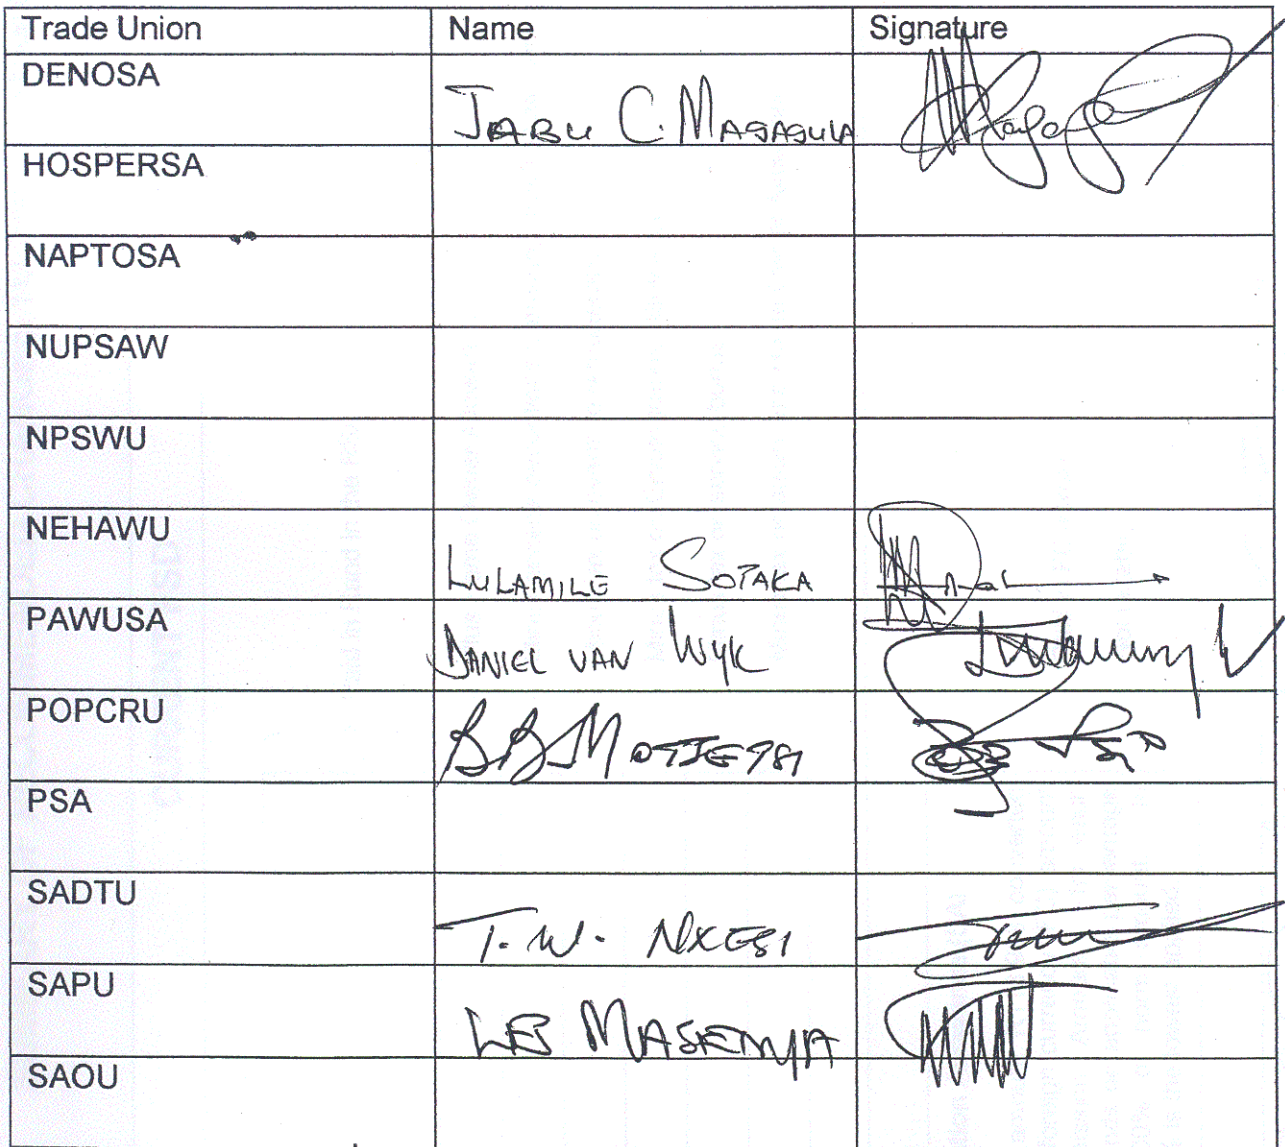 Trade Union Name Signature
DENOSA
JABU C. MAGAGULA
HOSPERSA
NAPTOSA
NUPSAW
NPSWU
NEHAWU
LULAMILE SOTAKA
PAWUSA
DANIEL VAN WYK
POPCRU
BB MOTJETSI
PSA
SADTU
T. W. NXESI
SAPU
LEB MASEMYA
SAOU